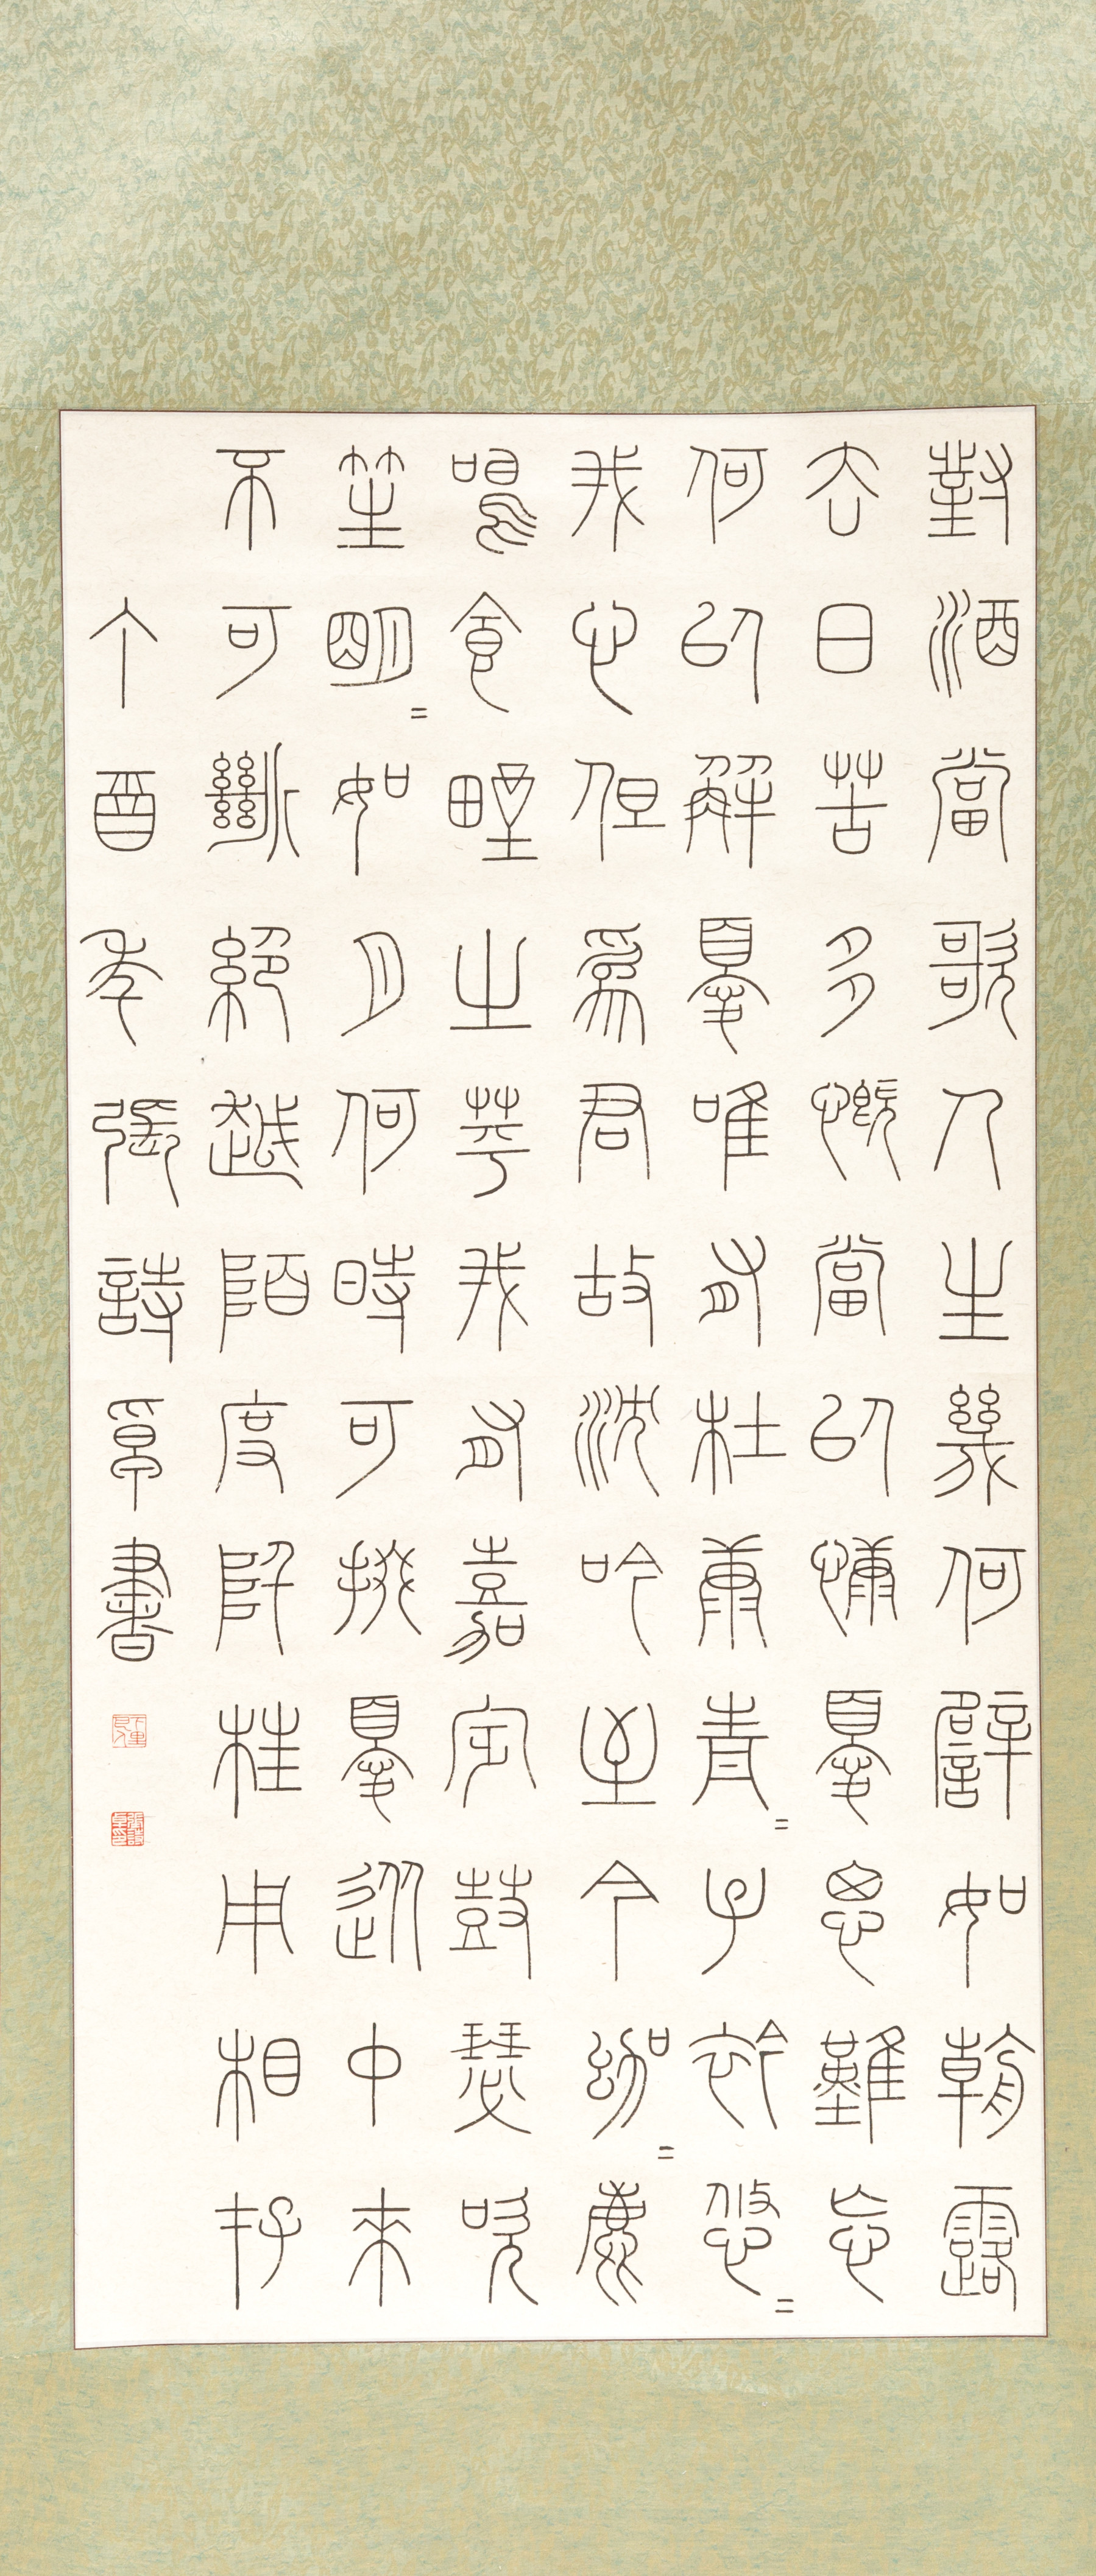 對酒當歌人生幾何譬如朝露
去日苦多慨當以慷憂思難忘
何以解憂唯有杜康青=子衿悠=
我心但為君故沈吟至今呦=鹿
鳴食野之苹我有嘉賓鼓瑟吹
笙明=如月何時可掇憂從中來
不可斷絕越陌度阡枉用相存
丁酉年張詩書